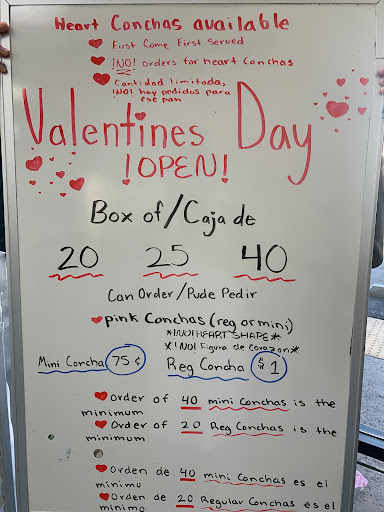 Heart Conchas available
First Come First Served
¡NO! orders for heart Conchas
Cantidad limitada,
¡NO! hay pedidos para
ese pan
Valentines Day
!OPEN!
Box of/Caja de
20 25 40
Can Order/Pude Pedir
pink Conchas (reg or mini)
*!NO! HEART SHAPE*
*!NO! Figura de Corazon*
Mini Concha 75¢ Reg Concha $1
Order of 40 mini Conchas is the
minimum
Order of 20 Reg Conchas is the
minimum
Orden de 40 mini Conchas es el
minimo
Orden de 20 Regular Conchas es el
minimo